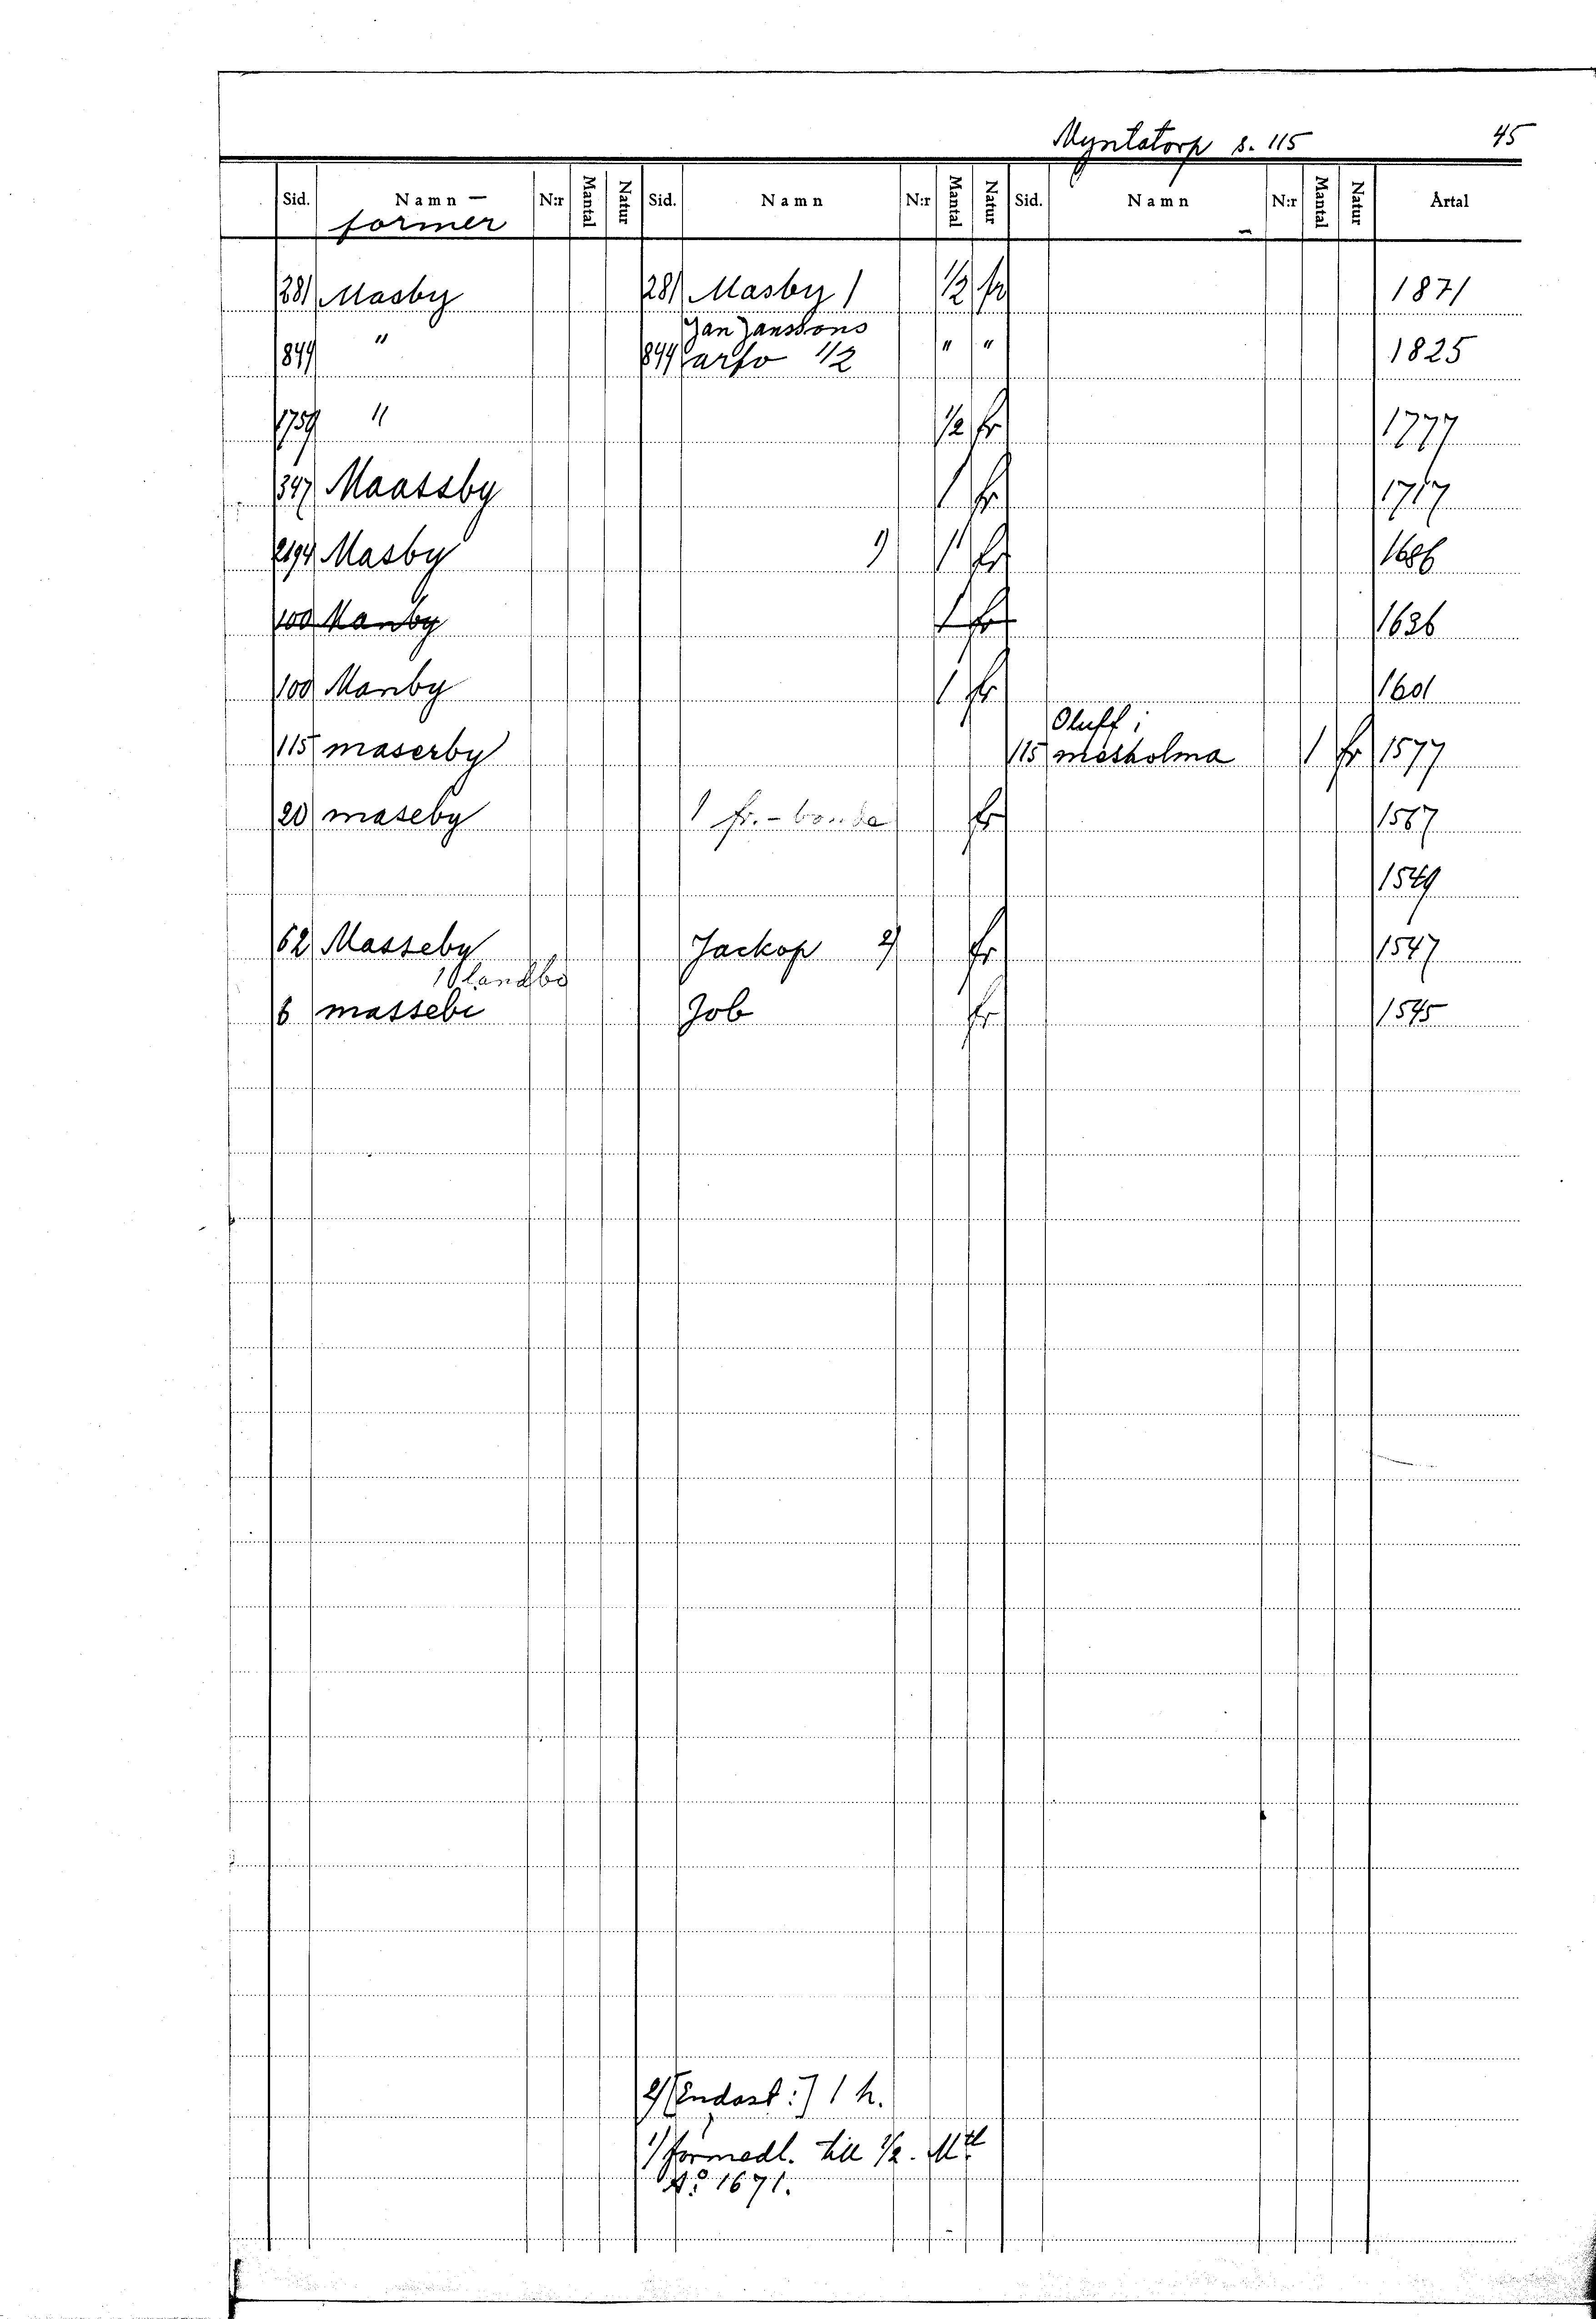 Myntatorp s. 115 45
Sid. Namn – N:r Mantal Natur Sid. Namn N:r Mantal Natur Sid. Namn N:r Mantal Natur Årtal
former
281 Masby 281 Masby 1 1/2 fr 1871
Jan Janssons
844 " 844 arfv 1/2 " " 1825
1759 " 1/2 fr 1777
347 Maassby 1 fr 1717
2194 Masby 1) 1 fr 1686
100 Manby 1 fr 1636
100 Manby 1 fr 1601
Oluff i
115 maserby 115 masholma 1 fr 1577
20 maseby 1 fr.-bonde fr 1567
1549
62 Masseby Jackop 2) fr 1547
1 landbo
6 massebi Job fr 1545
2) [Endast:] 1 h.
1) förmedl. till 1/2. Mtl
Ao: 1671.